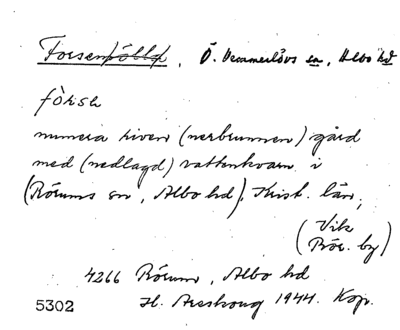 Forsemölla, Ö. Vemmerlövs sn, Albo hd
fòrsa
numera riven (nerbrunnen) gård
med (nedlagd) vattenkvarn i
(Rörums sn, Albo hd), Krist. län,
(Vik
Rör. by)
4266 Rörum, Albo hd
5302 H. Areskoug 1944. Kop.